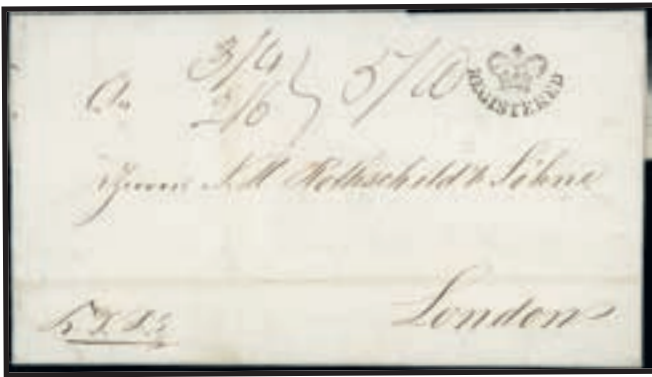 3/4 } 5/10
2/6
REGISTERED
Herrn N M Rothschild & Söhne
London